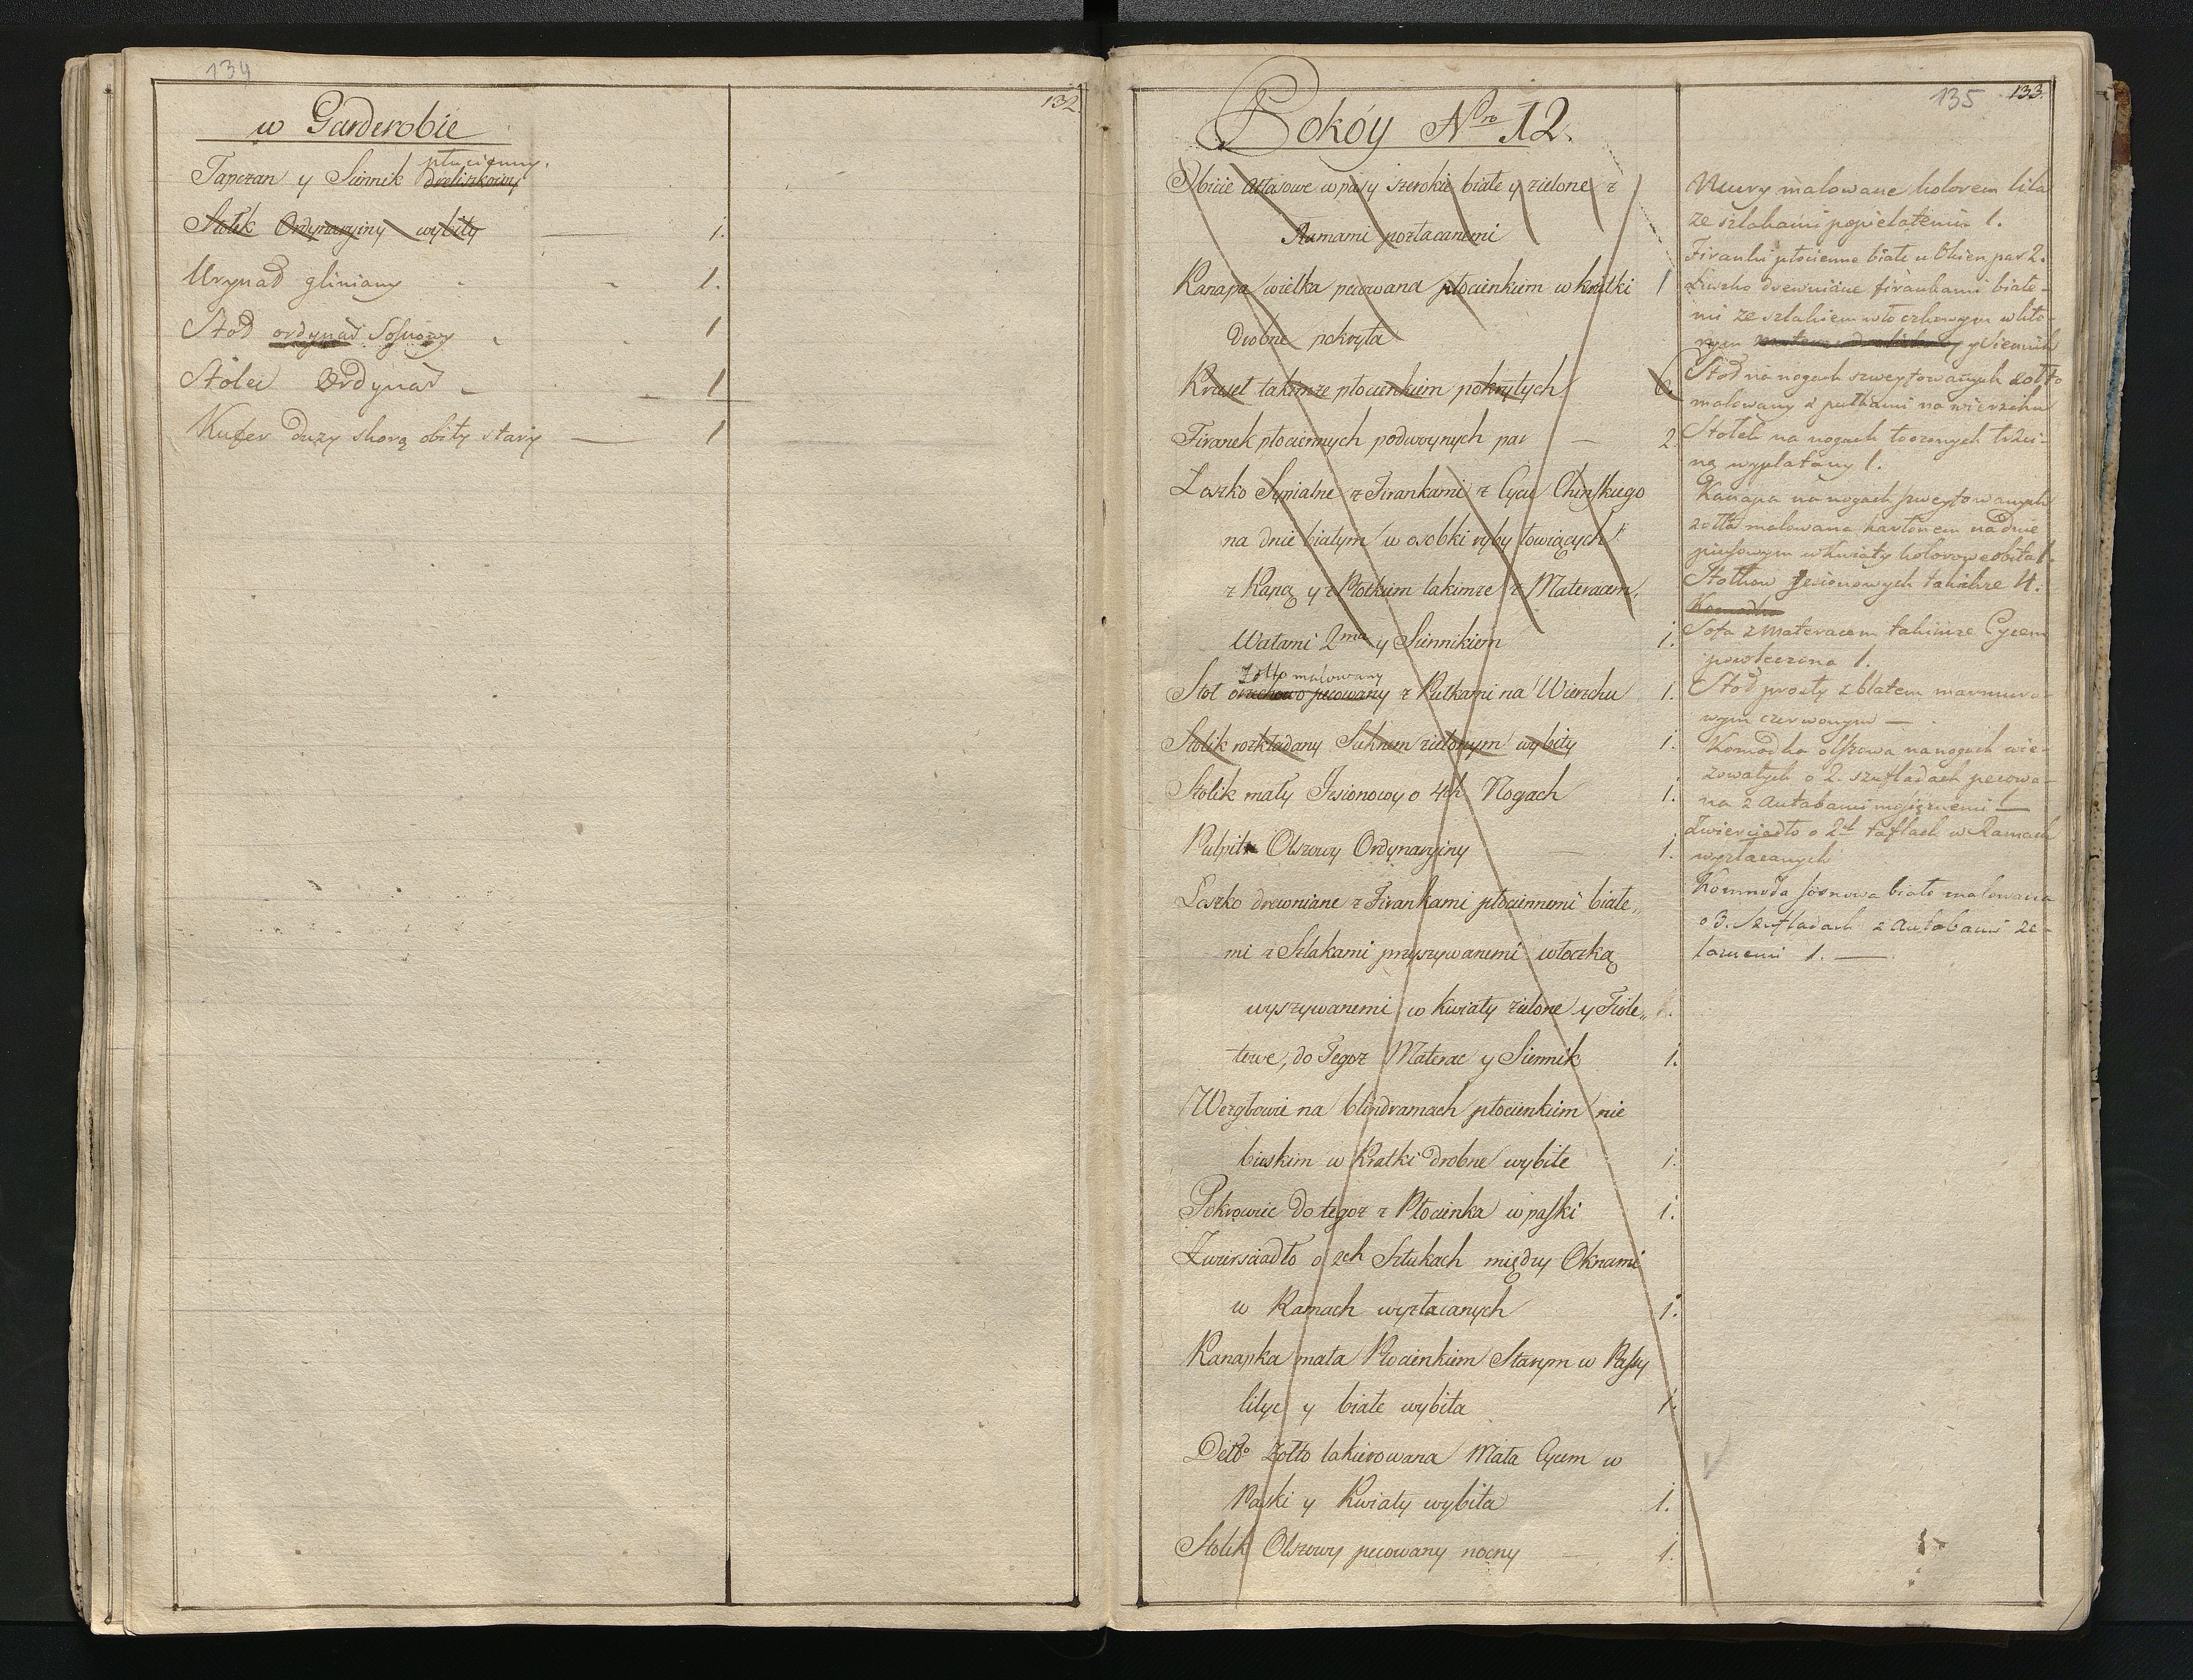 134
132.
w Garderobie
płucienny.
Tapczan y Siennik dreliszkowy
Stolik Ordynaryiny wybity — 1.
Urynał gliniany - - 1.
Stoł ordynar Sosnowy - - 1
Stolci Ordynar - — 1
Kufer duzy skorą obity stary — 1
135 133.
Pokóy Nro 12.
Obicie Atłasowe w pasy szerokie białe y zielone z
Ramami pozłacanemi
Kanapa wielka pecowana płocienkiem w kratki 1
drobne pokryta
Krzseł takimze płocienkiem pokrytych 6.
Firanek płociennych podwoynych par — 2.
Loszko Sypialne z Firankami z Cycu Chinskiego
na dnie białym w osobki ryby łowiących
z Kapą y z Wołkiem takimze z Materacem,
Watami 2ma y Siennikiem 1.
Zołto malowany
Stoł orzechowo pecowany z Pułkami na Wierzchu 1.
Stolik rozkładany Suknem zielonym wybity 1.
Stolik mały Jesionowy o 4ch Nogach 1.
Pulpit Olszowy Ordynaryiny — 1.
Loszko drewniane z Firankami płociennemi białe„
mi z Szlakami przyszywanemi włoczką
wyszywanemi w kwiaty zielone y Fiole„
towe, do Tegoz Materac y Siennik 1.
Wezgłowie na blindramach płocienkiem nie
bieskim w Kratki drobne wybite 1.
Pokrowiec do tegoz z Płocienka w paski 1.
Zwiersciadło o 2ch Sztukach między Oknami
w Ramach wyzłacanych 1.
Kanapka mała Płocienkiem Starym w Pasy
lilye y białe wybita 1.
Detto Zołto lakierowana Mała Cycem w
Paski y Kwiaty wybita 1.
Stolik Olszowy pecowany nocny — 1.
Mury malowane kolorem lila
ze szlakami popielatemi 1.
Firanki płocienne białe u Okien par 2.
Łuszko drewniane firankami białe-
mi ze szlakiem włoczkowym w kto-
rym y Siennik
Stoł na nogach szweyfowanych zołto
malowany z pułkami na wierzchu
Stołek na nogach toczonych trzci-
ną wyplatany 1.
Kanapa na nogach szweyfowanych
zołta malowana kartonem na dnie
pąsowym w kwiaty kolorowe obita 1.
Stołkow Jesionowych takichze 4.
Komodka
Sofa z materacem takimze Cycem
powleczona 1.
Stoł prosty z blatem marmuro-
wym czerwonym — .
Komodka olszowa na nogach wie-
zowatych o 2. szufladach pecowa-
na z Antabami mosięznemi 1
Zwierciadło o 2ch taflach w Ramach
wyzłacanych
Kommoda sosnowa biało malowana
o 3. Szufladach z Antabami ze-
laznemi 1. —